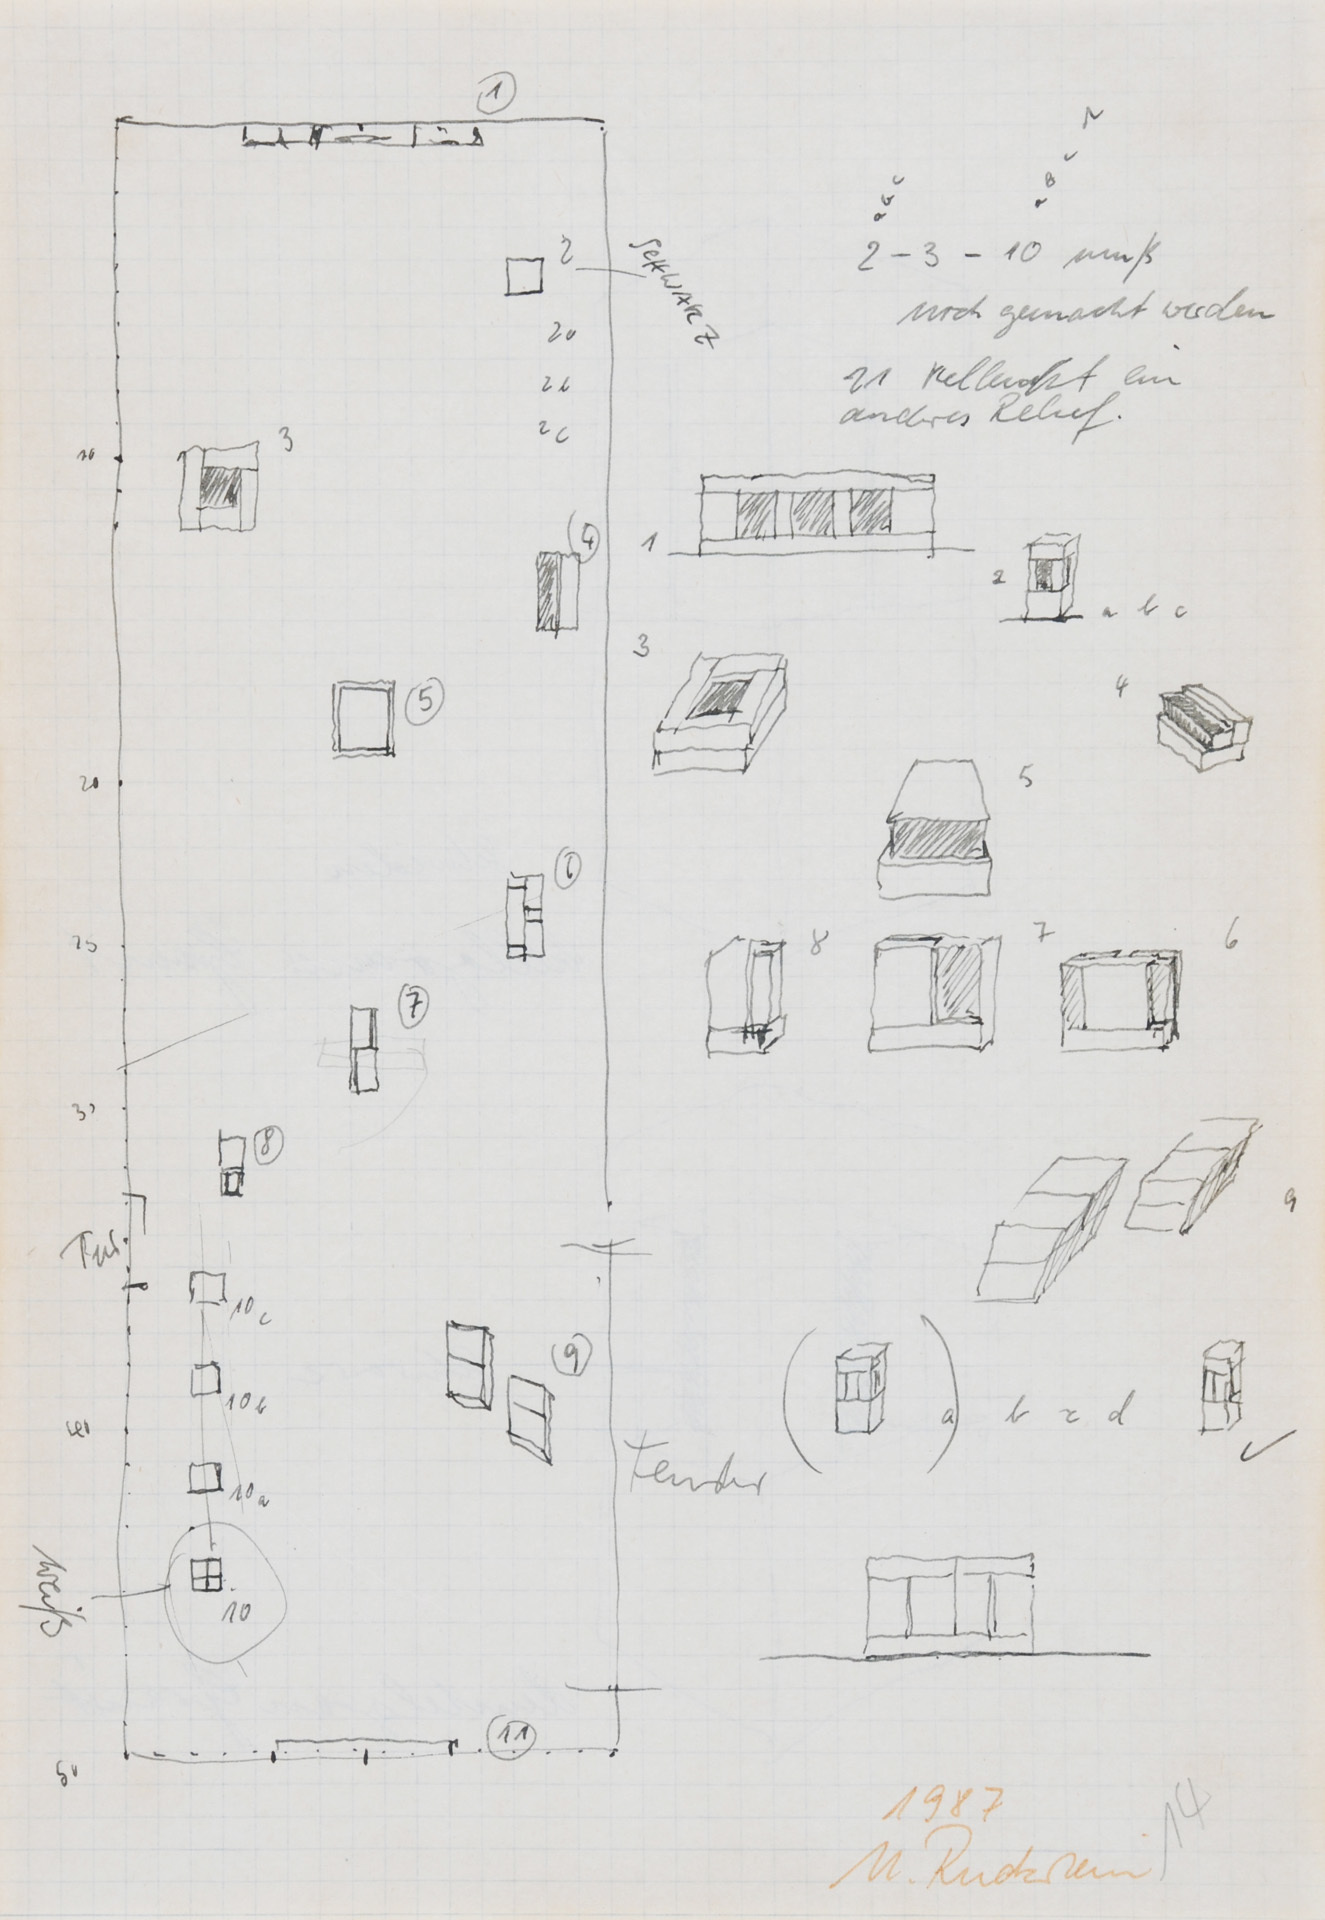 1
2
SCHWARZ
2a
2b
2c
a b c
a b c
2 - 3 - 10 muß
noch gemacht werden
21 vielleicht ein
anderes Relief.
10
3
4
1
2
a b c
3
4
5
5
20
6
25
7
8
7
6
30
8
9
Tür
10c
9
10b
(a) b c d
40
10a
Fenster
Weiß
10
11
50
1987
U. Rückriem
14